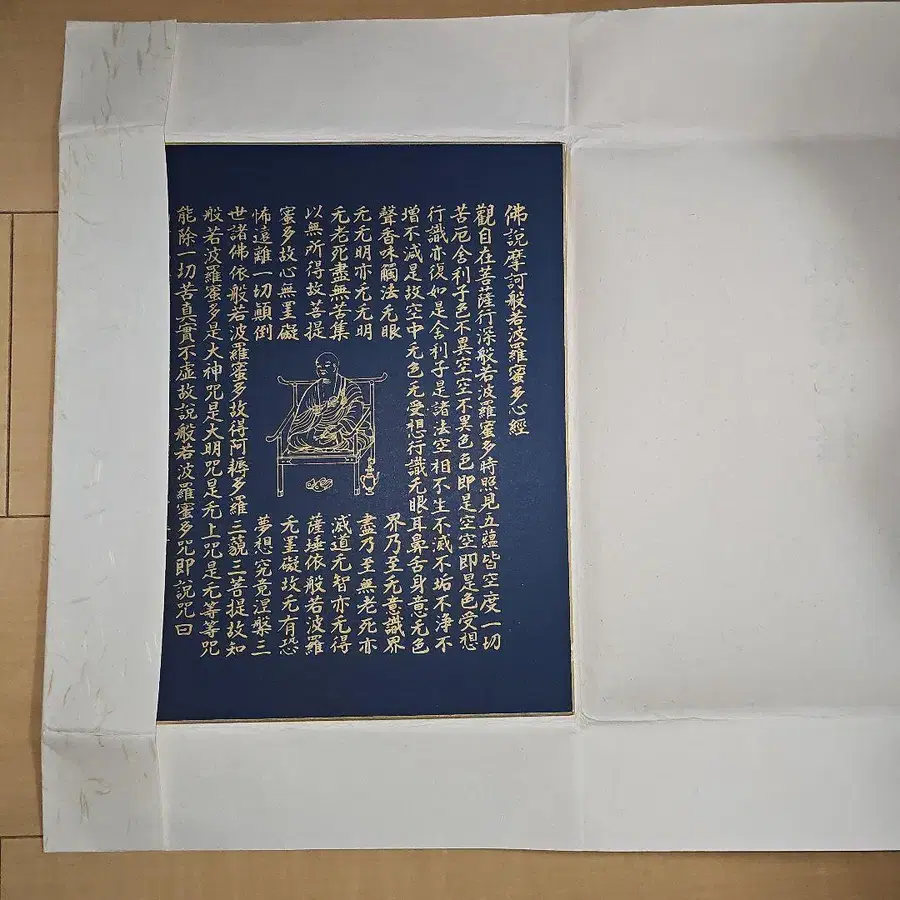 佛說摩訶般若波羅蜜多心經
觀自在菩薩行深般若波羅蜜多時照見五蘊皆空度一切
苦厄舍利子色不異空空不異色色即是空空即是色受想
行識亦復如是舍利子是諸法空相不生不滅不垢不淨不
增不減是故空中无色无受想行識无眼耳鼻舌身意无色
聲香味觸法无眼界乃至无意識界
无无明亦无无明盡乃至無老死亦
无老死盡無苦集滅道无智亦无得
以無所得故菩提薩埵依般若波羅
蜜多故心無罣礙无罣礙故无有恐
怖遠離一切顛倒夢想究竟涅槃三
世諸佛依般若波羅蜜多故得阿耨多羅三藐三菩提故知
般若波羅蜜多是大神咒是大明咒是无上咒是无等等咒
能除一切苦真實不虛故說般若波羅蜜多咒即說咒曰